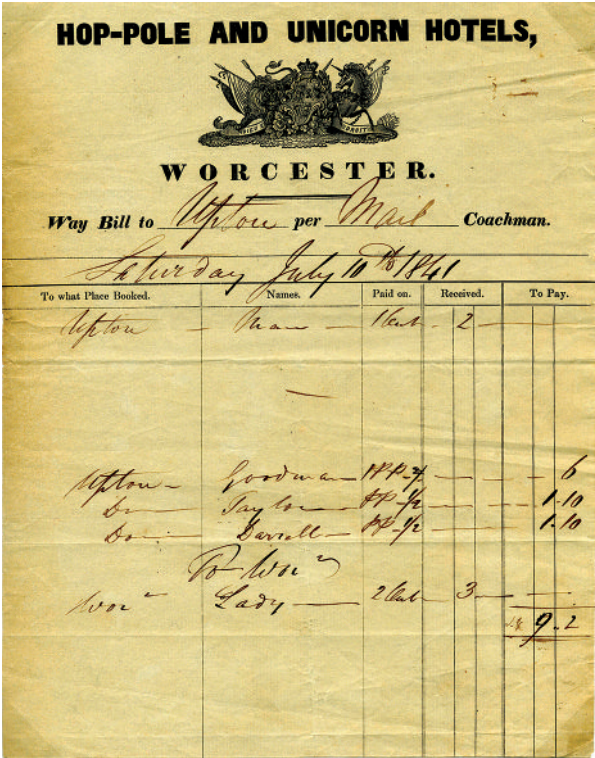 HOP-POLE AND UNICORN HOTELS,
DIEU ET DROIT
WORCESTER.
Way Bill to Upton per Mail Coachman.
Saturday July 10th 1841
To what Place Booked. Names. Paid on. Received. To Pay.
Upton - Man - 1 Out - 2 -
Upton - Goodman - 6
Do - Taylor - 1-10
Do - Darrell - 1-10
To Wor
Wor Lady - 2 Out - 3 -
9-2